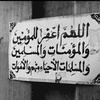 اللهم اغفر للمؤمنين
والمؤمنات والمسلمين
والمسلمات الأحياء منهم والأموات